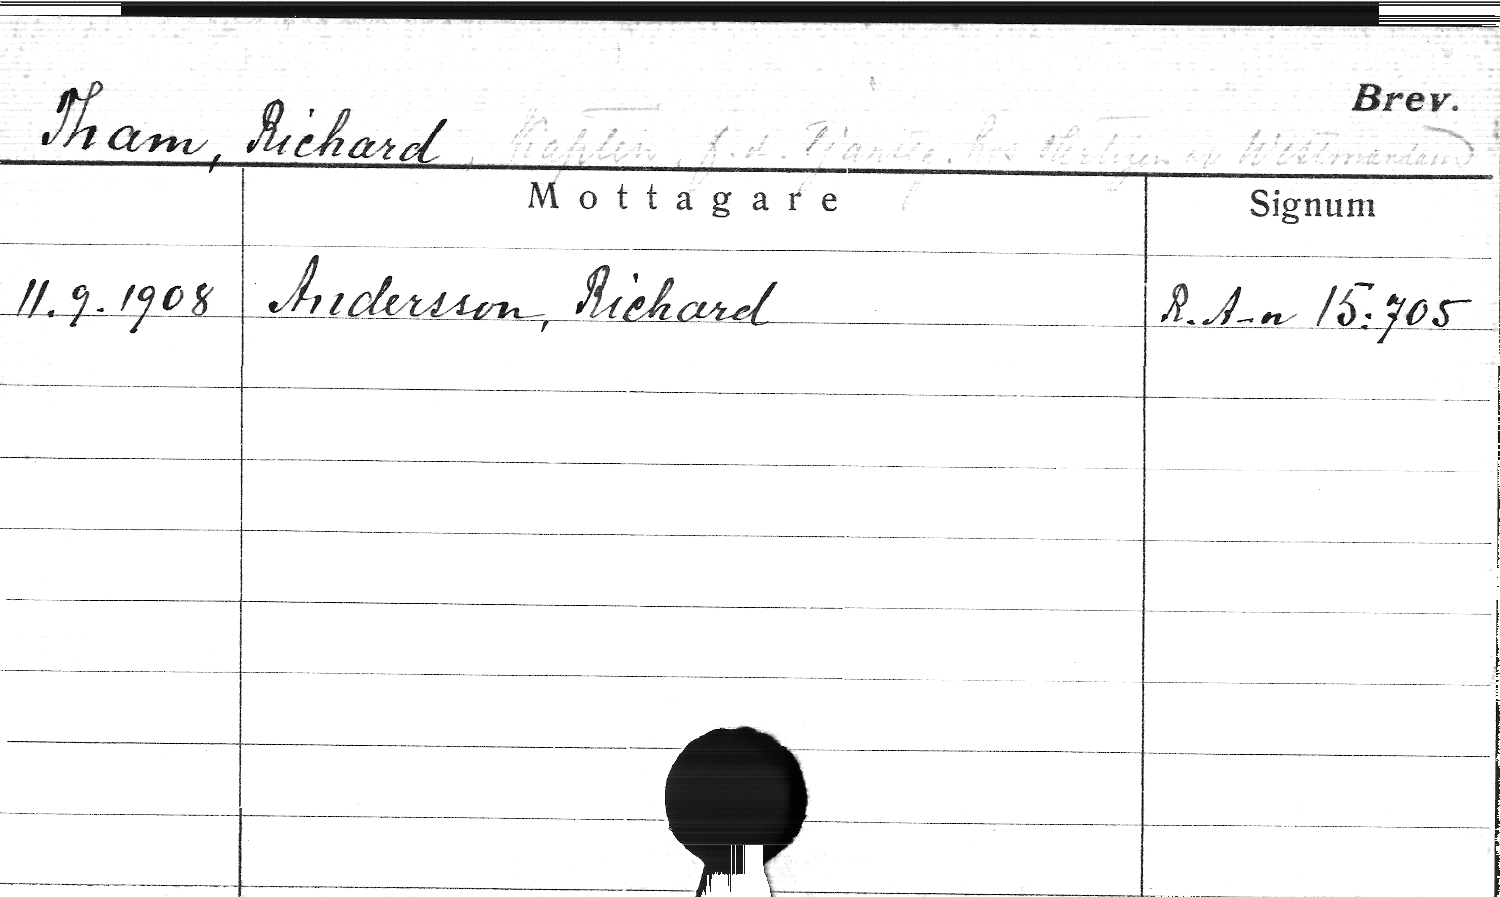 Brev.
Tham, Richard, Kapten, f.d. hos Hertigen av Westmanland
Mottagare Signum
11.9.1908 Andersson, Richard R. A-n 15:705